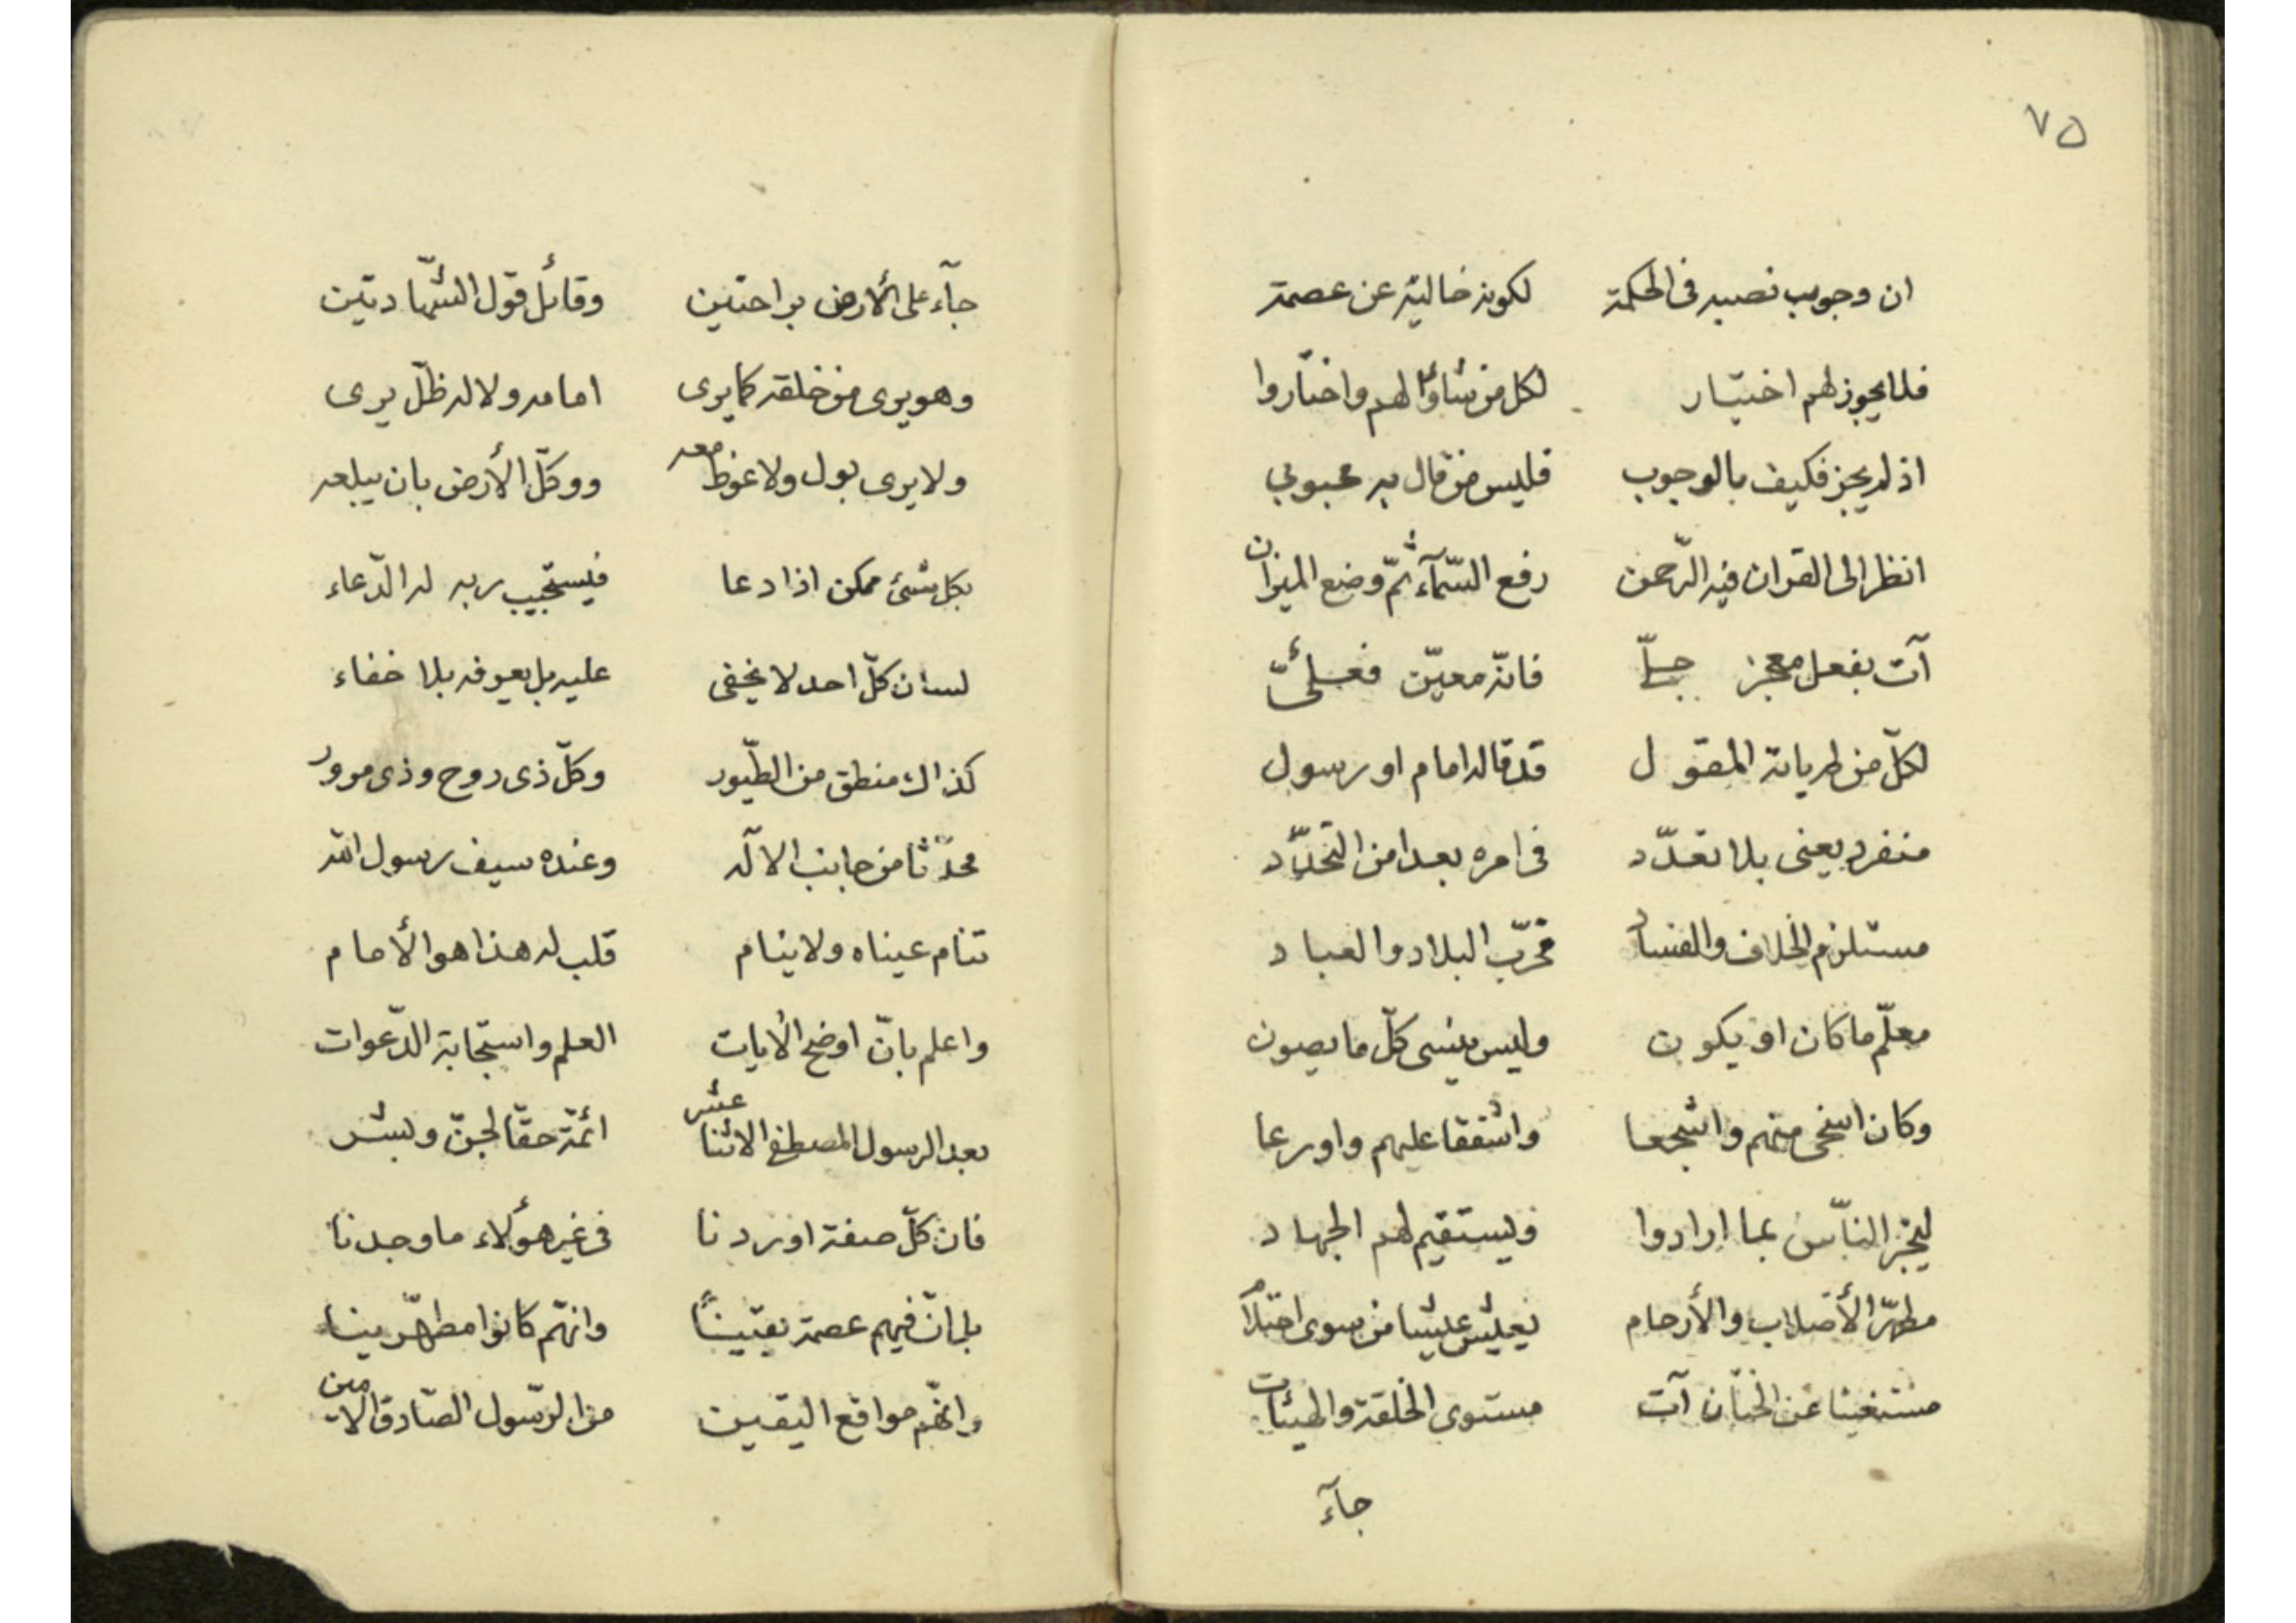 ٧٥
ان وجوب نصبه فى الحكمة لكونه خالية عن عصمة
فلا يجوز لهم اختيار لكل من شاؤا لهم واختاروا
اذ لم يجز فكيف بالوجوب فليس من قال به محبوبي
انظر الى القران فيه الرّحمن رفع السّمآء ثمّ وضع الميزان
آت بفعل معجز جليّاً فانّه معيّن
لكلّ من المقول قد قاله امام او رسول
منفرد يعنى بلا تعدّد فى امره بعدا من التّحدّد
مستلزم الخلاف والفساد مخرّب البلاد والعباد
معلّم ما كان او يكون وليس ينسى كلّ ما يصون
وكان اسخى منهم واشجعا واشفقا عليهم واورعا
ليخبر النّاس بما ارادوا ويستقيم لهم الجهاد
مطهّر الأصلاب والأرحام يعيش عليشا من سوى احتلام
مستغنيا عن الختان آت مستوى الخلقة والهيئات
جآء
جآء على الأرض براحتين وقائل قول الشّهادتين
وهو يرى من خلقه كما يرى امامه ولا له ظلّ يرى
ولا يرى بول ولا غوظ معه ووكّل الأرض بان يبلعه
بكل شئ ممكن اذا دعا فيستجيب ربه له الدّعاء
لسان كلّ احد لا يخفى عليه بل يعرفه بلا خفاء
كذاك منطق من الطّيور وكلّ ذى روح وذى مرور
محدّثا من جانب الآله وعنده سيف رسول الله
تنام عيناه ولا ينام قلب له هذا هو الأمام
واعلم بانّ اوضح الأيات العلم واستجابة الدّعوات
بعد الرسول المصطفى الاثنا عشر ائمّة حقّا لجنّ وبشر
فان كلّ صفة اوردنا فى غير هؤلاء ما وجدنا
بل انّ فيهم عصمة يقيناً وانّهم كانوا مطهّرينا
وانّهم مواقع اليقين من الرّسول الصّادق الامين